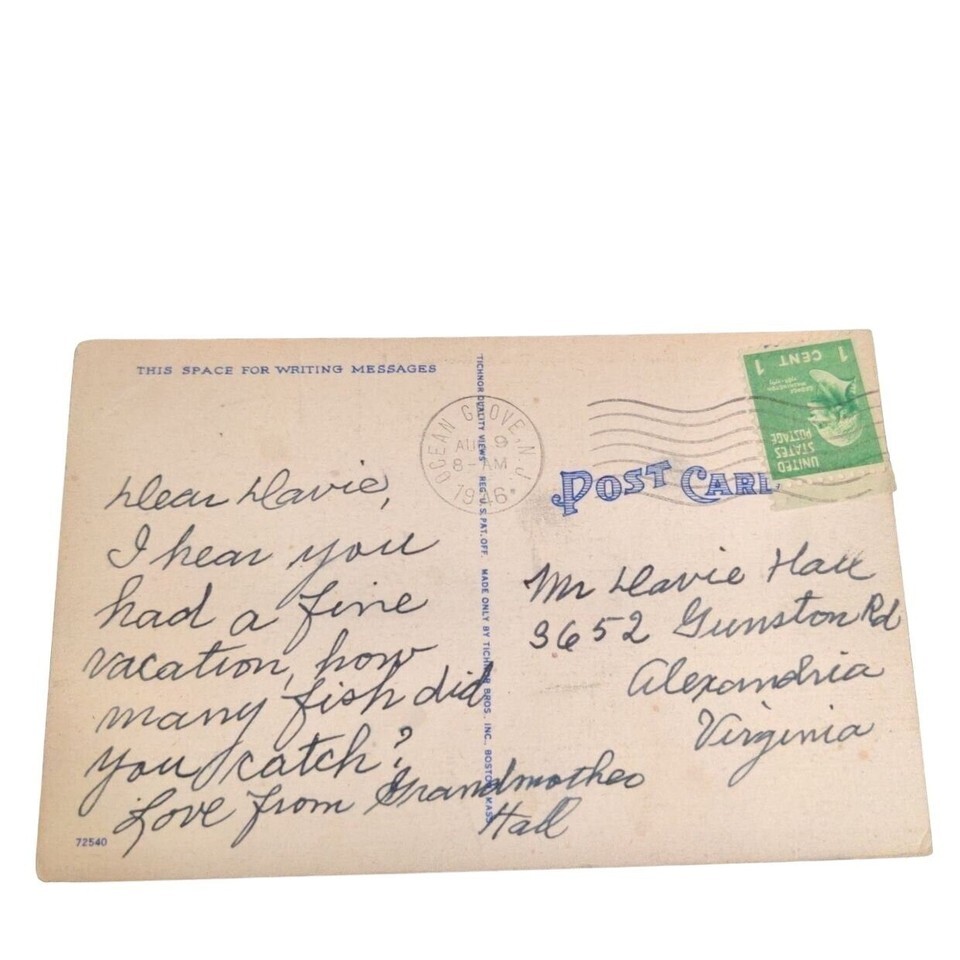 THIS SPACE FOR WRITING MESSAGES
Dear Davie,
I hear you
had a fine
vacation, how
many fish did
you catch?
Love from Grandmother
Hall
72540
TICHNOR QUALITY VIEWS REG. U.S. PAT. OFF. MADE ONLY BY TICHNOR BROS. INC., BOSTON, MASS.
OCEAN GROVE, N.J.
AUG 9
8-AM
1946
POST CARD
1 CENT 1
GEORGE
WASHINGTON
UNITED
STATES
POSTAGE
Mr Davie Hall
3652 Gunston Rd
Alexandria
Virginia